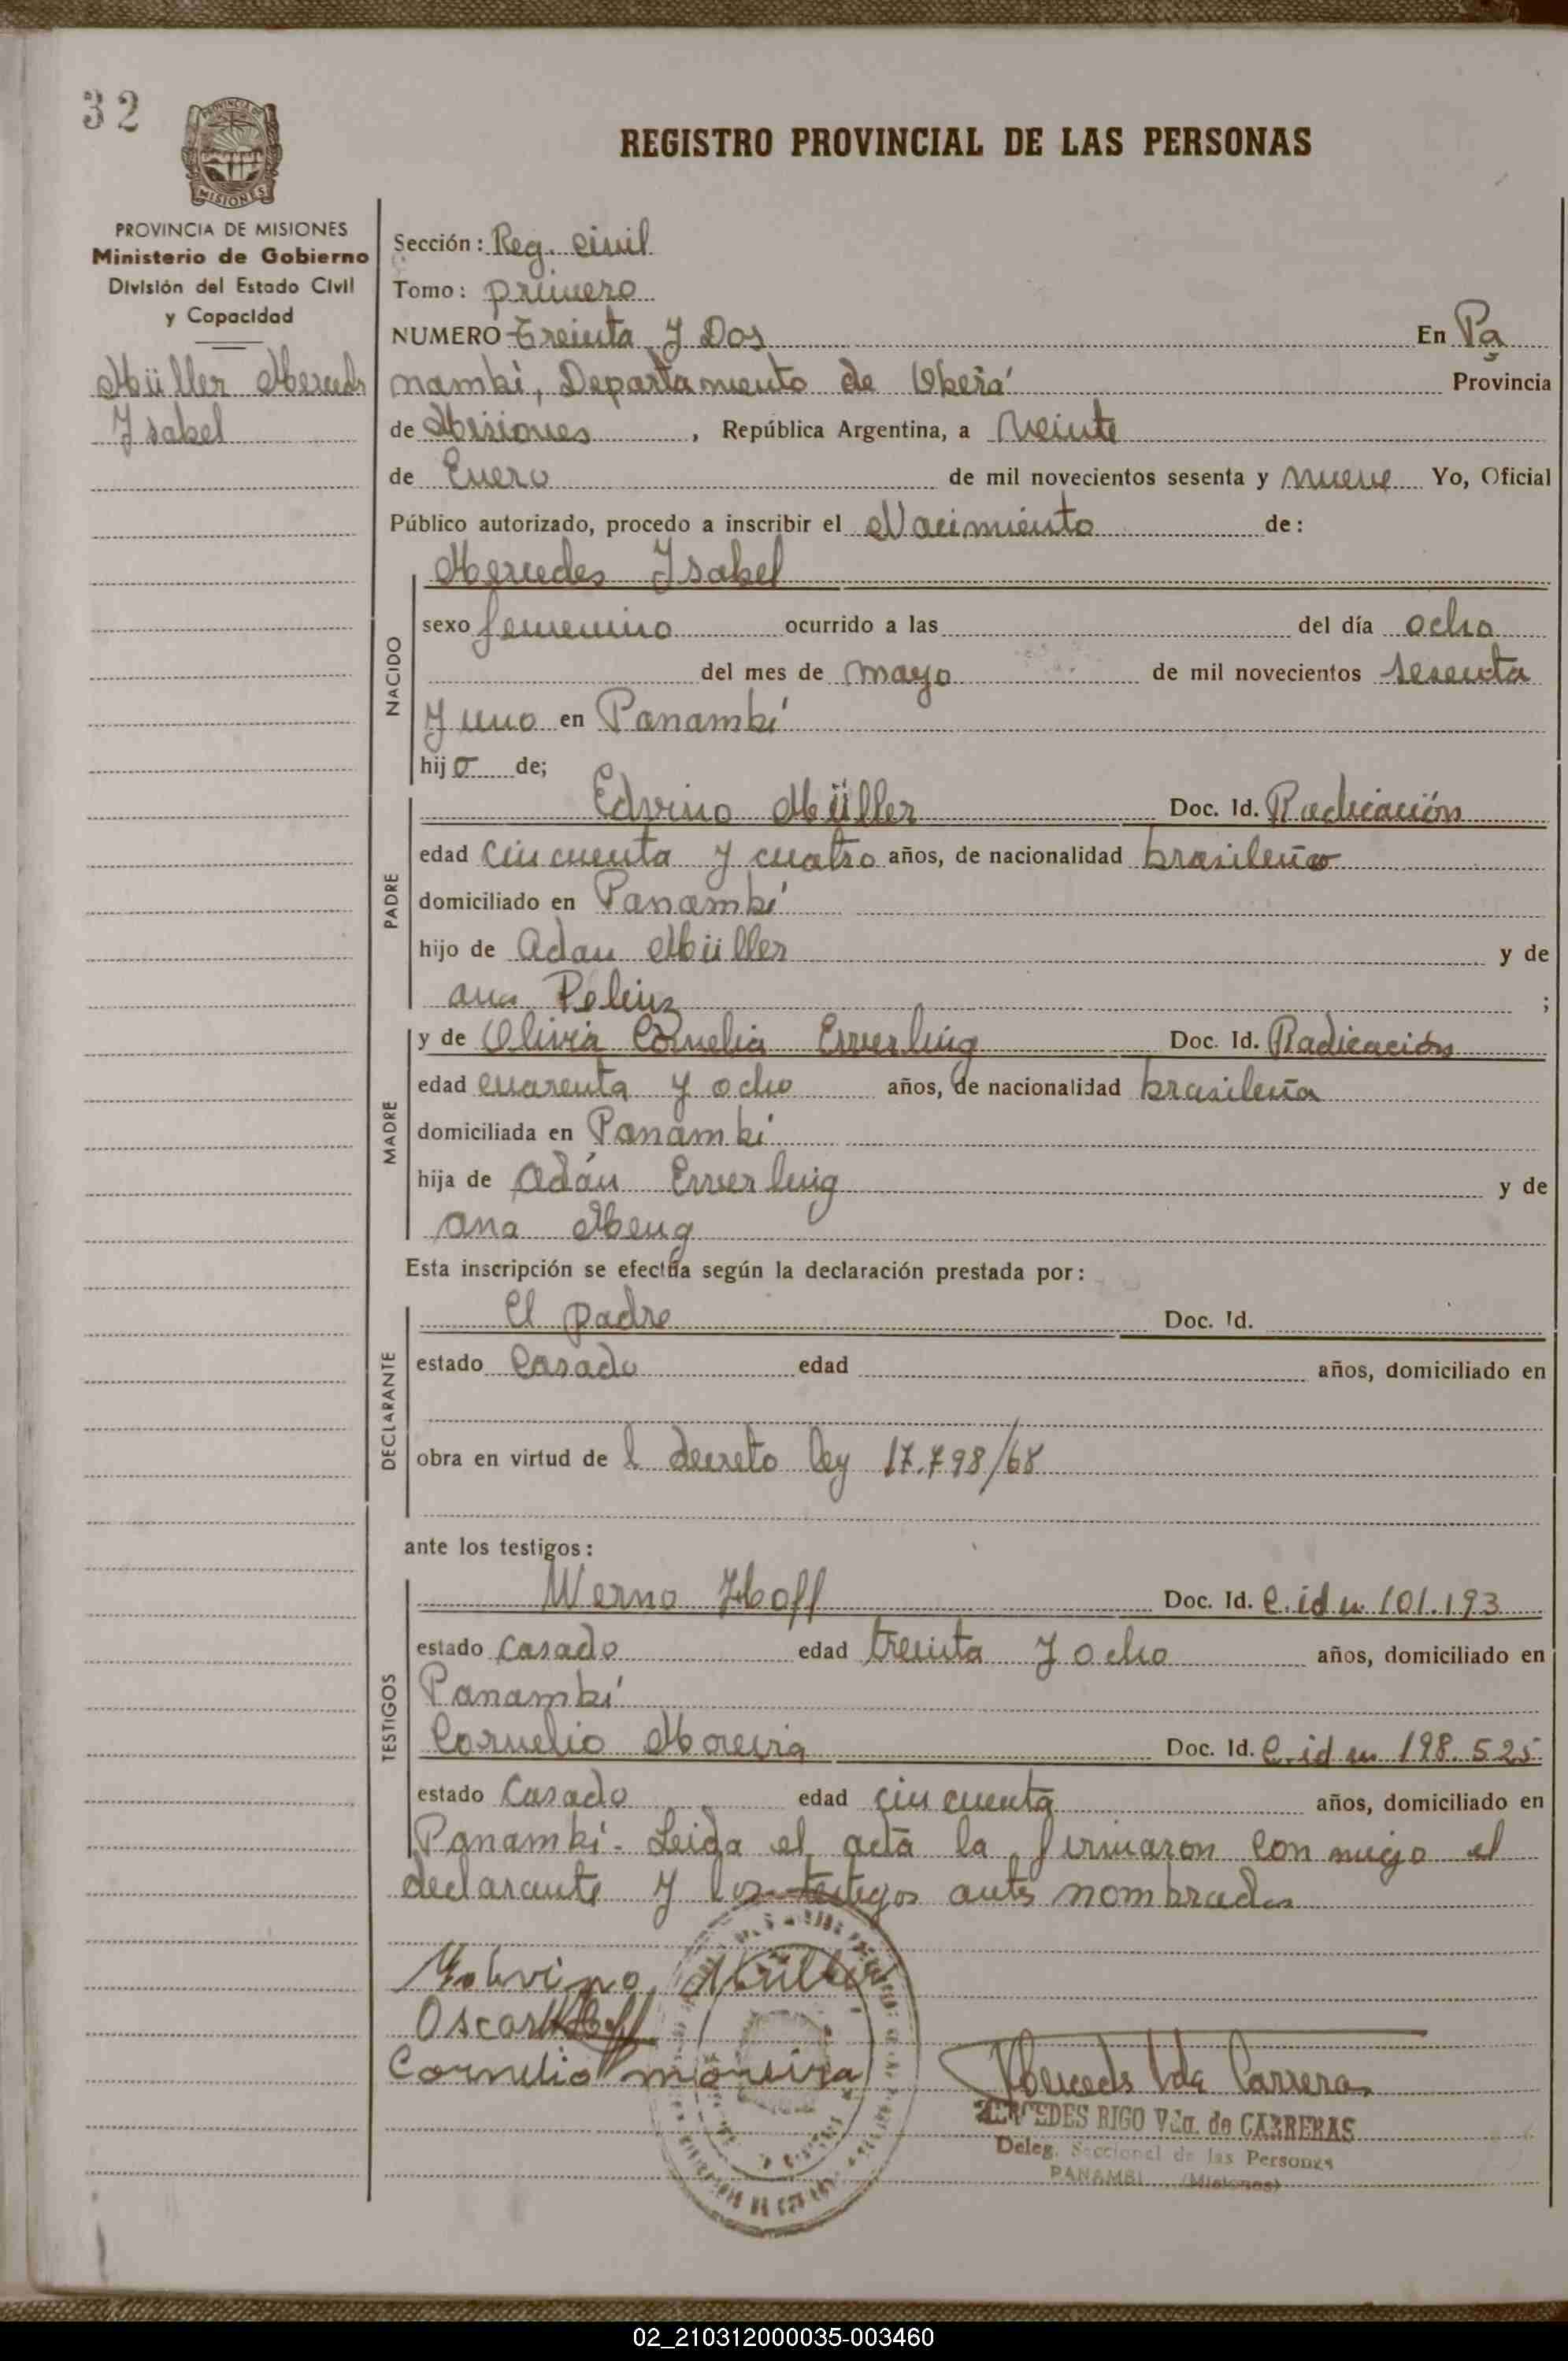 32
REGISTRO PROVINCIAL DE LAS PERSONAS
PROVINCIA DE
MISIONES
PROVINCIA DE MISIONES
Ministerio de Gobierno
División del Estado Civil
y Capacidad
Müller Mercedes
Isabel
Sección: Reg. Civil
Tomo: primero
NUMERO Treinta y Dos En Pa
nambí, Departamento de Oberá Provincia
de Misiones, República Argentina, a Veinte
de Enero de mil novecientos sesenta y nueve Yo, Oficial
Público autorizado, procedo a inscribir el Nacimiento de:
NACIDO
Mercedes Isabel
sexo femenino ocurrido a las del día ocho
del mes de mayo de mil novecientos sesenta
y uno en Panambí
hija de;
PADRE
Edvino Müller Doc. Id. Radicación
edad cincuenta y cuatro años, de nacionalidad brasileño
domiciliado en Panambí
hijo de Adan Müller y de
Ana ;
MADRE
y de Olivia Cornelia Doc. Id. Radicación
edad cuarenta y ocho años, de nacionalidad brasileña
domiciliada en Panambí
hija de Adán y de
Ana
Esta inscripción se efectúa según la declaración prestada por:
DECLARANTE
El padre Doc. Id.
estado Casado edad años, domiciliado en
obra en virtud de l decreto ley 17.798/68
ante los testigos:
TESTIGOS
Werno Hoff Doc. Id. C. id n 101.193
estado casado edad treinta y ocho años, domiciliado en
Panambí
Cornelio Moreira Doc. Id. C. id n 198.525
estado Casado edad cincuenta años, domiciliado en
Panambí. Leida el acta la firmaron con migo el
declarante y los testigos antes nombrados
Müller
Oscar Hoff
Cornelio moreira
Mercedes Vda Carreras
MERCEDES RIGO Vda. de CARRERAS
Deleg. Seccional de las Personas
PANAMBI (Misiones)
02_210312000035-003460